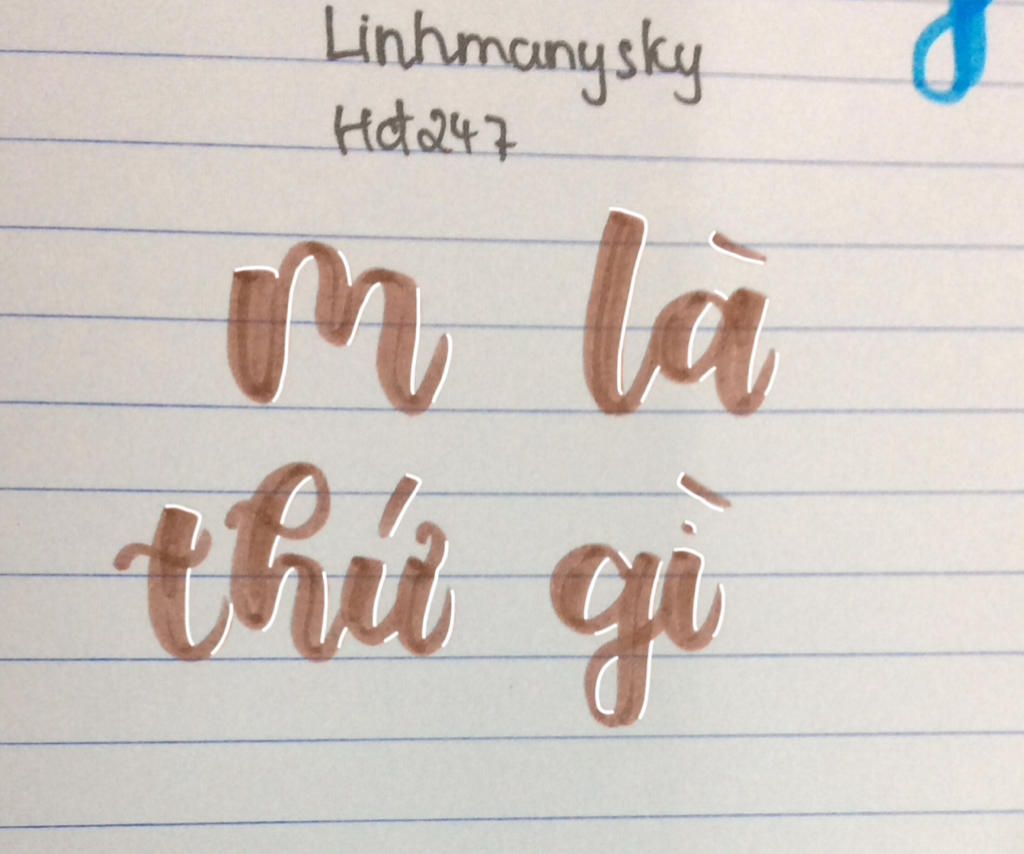 Linhmanysky
Hdt247
m là
thứ gì